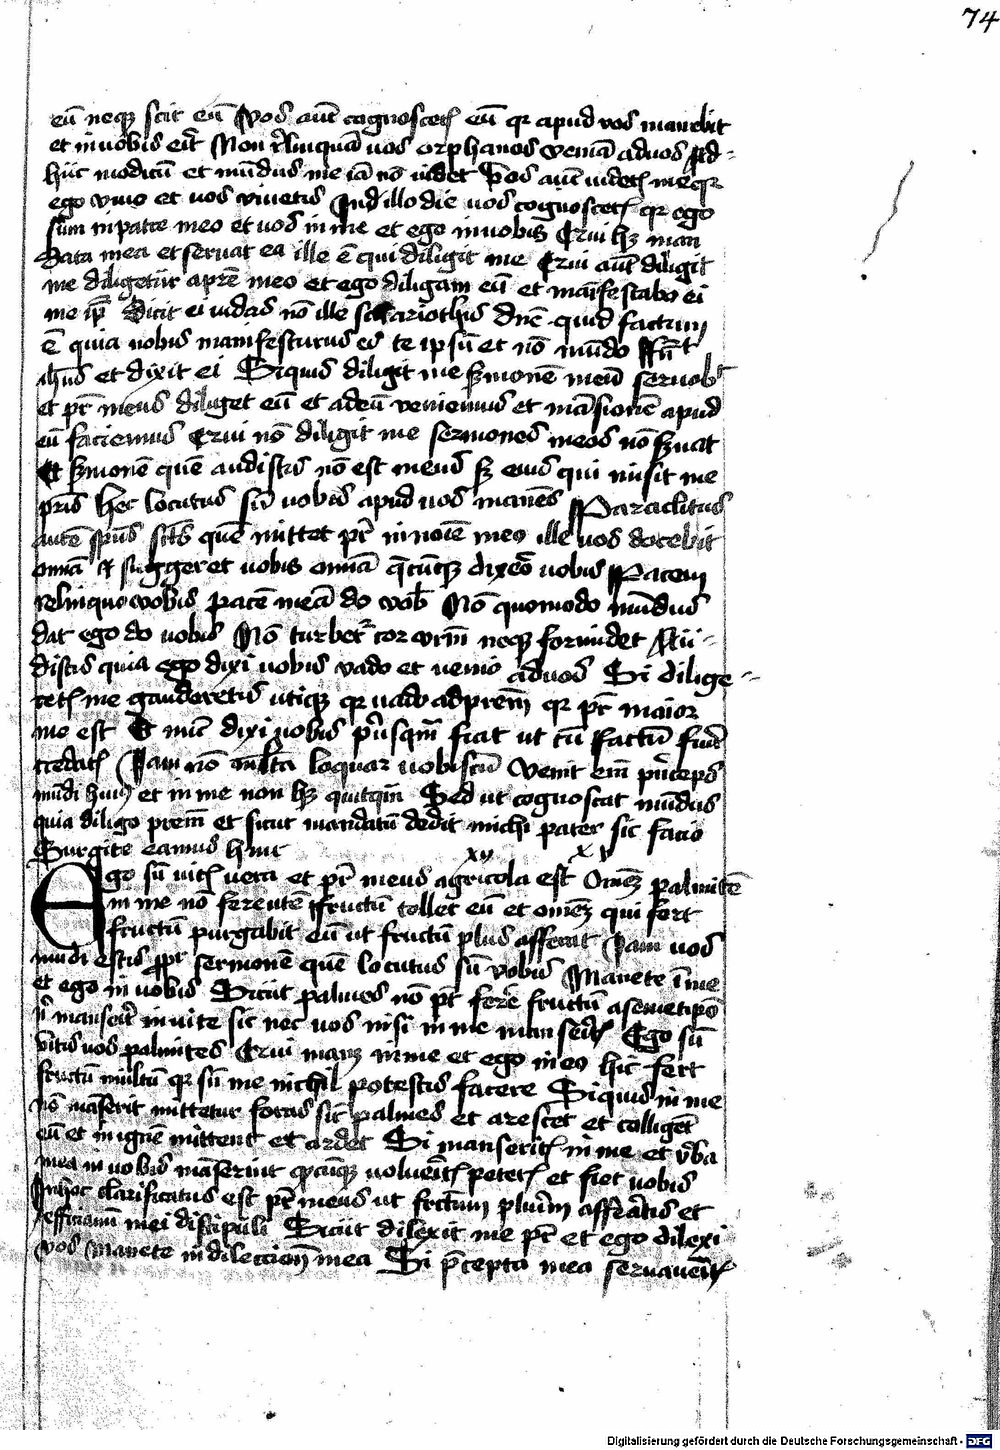 74
eū neqꝫ scit eū Vos aūt cognoscetꝭ eū qꝛ apud vos manebit
et in vobis eit̄ Non r̄linquā uos orphanos veniā ad vos Ad-
huc modicū et mūdus me iā nō uidet Vos aūt uidetꝭ me qꝛ
ego vivo et uos vivetis In illo die uos cognoscetꝭ qꝛ ego
sum in patre meo et uos in me et ego in vobis Qui hꝫ man
data mea et servat ea ille ē qui diligit me Qui aūt diligit
me diligetur a pr̄e meo et ego diligam eū et māifestabo ei
me ip̄ Dicit ei iudas nō ille scariothis dn̄e quid factum
ē quia nobis manifesturus es te ipsū et nō mūdo
ih̄us et dixit ei Siquis diligit me s̄monē meū servabᵗ
et pr̄ meus diliget eū et ad eū veniemus et māsionē apud
eū faciemus Qui nō diligit me sermones meos nō s̄uat
Et s̄monē quē audistis nō est meus sꝫ eius qui misit me
pr̄is hec locutus sū uobis apud uos manēs Paraclitus
autē sp̄us sc̄s quē mittet pr̄ in noīe meo ille uos docebit
omīa et suggeret uobis omīa q̄cūqꝫ dixēo uobis Pacem
relinquo vobis pacē meā do vob̄ Nō quomodo mūdus
dat ego do uobis Nō turbetᷣ cor vr̄m neqꝫ formidet Au-
distis quia ego dixi uobis vado et uenio ad vos Si dilige-
retꝭ me gauderetis utiqꝫ qꝛ uado ad prem̄ qꝛ pr̄ maior
me est Et nūc dixi uobis p̄usqm̄ fiat ut cū factū fuīt
credatꝭ Iam nō multa loquar uobiscū Venit em̄ p̄nceps
mūdi huiꝰ et in me non hꝫ quitqm̄ Sed ut cognoscat mūdus
quia diligo prem̄ et sicut mandatū dedit michi pater sic facio
Surgite eamus hinc
xv xv
Ego sū uitꝭ vera et pr̄ meus agricola est Omēꝫ palmitē
in me nō ferentē fructū tollet eū et omēꝫ qui fert
fructū purgabit eū ut fructū plus afferat Iam uos
mūdi estis ꝓpt̄ sermonē quē locutus sū vobis Manete ī me
et ego in uobis Sicut palmes nō pt̄ ferre fructū a semetip̄o
n̄ manserit in vite sic nec uos nisi in me manseritꝭ Ego sū
vitis uos palmites Qui manꝫ in me et ego in eo hic fert
fructū multū qꝛ sn̄ me nichil potestis facere Siquis in me
nō māserit mittetur foras sic̄ palmes et arescet et colliget̄
eū et in ignē mittent et ardet Si manseritꝭ in me et v̄ba
mea in uobis māserint qcūqꝫ uolueritꝭ petetꝭ et fiet uobis
In hoc clarificatus est pr̄ meus ut fructum plurim̄ afferatis et
efficiamī mei discipuli Sicut dilexit me pr̄ et ego dilexi
vos Manete in dilectiom̄ mea Si p̄cepta mea servaueritꝭ
Digitalisierung gefördert durch die Deutsche Forschungsgemeinschaft - DFG